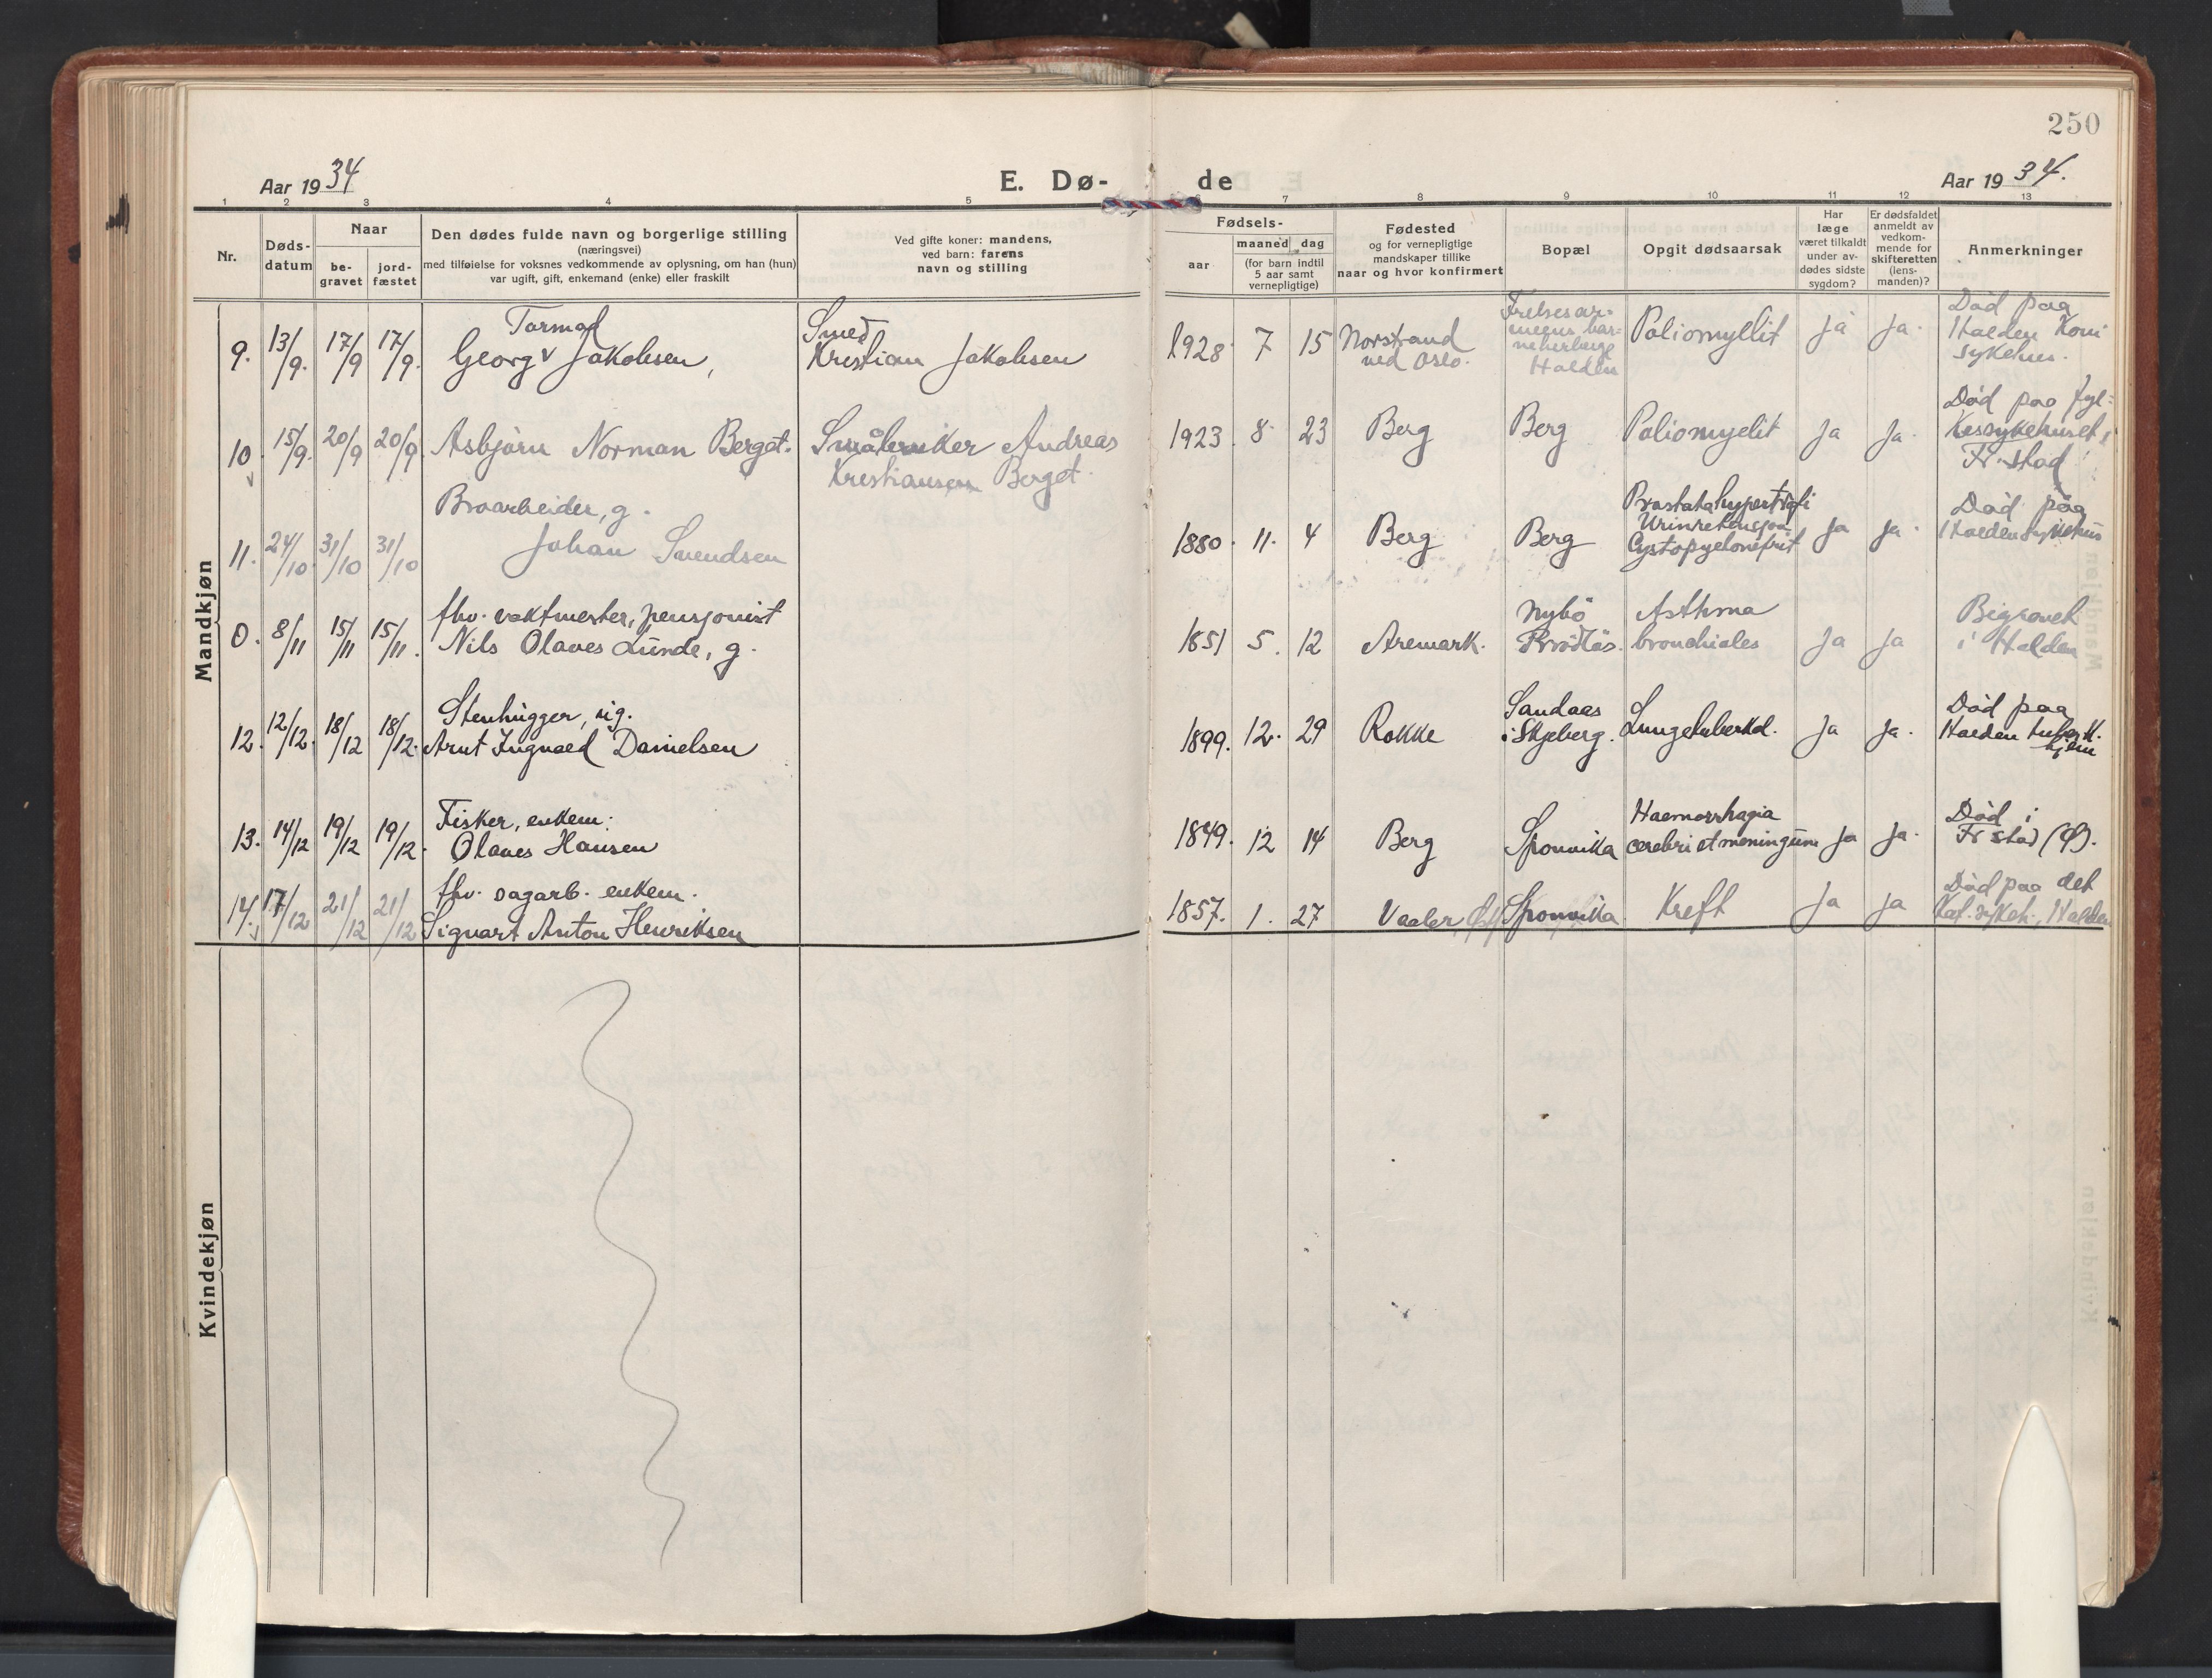 250
Aar 1934
E. Dø-
de
Aar 1934.
1 2 3 4 5 7 8 9 10 11 12 13
Nr.
Døds-
datum
Naar
be-
gravet
jord-
fæstet
Den dødes fulde navn og borgerlige stilling
(næringsvei)
med tilføielse for voksnes vedkommende av oplysning, om han (hun)
var ugift, gift, enkemand (enke) eller fraskilt
Ved gifte koner: mandens,
ved barn: farens
navn og stilling
Fødsels-
aar
maaned dag
(for barn indtil
5 aar samt
vernepligtige)
Fødested
og for vernepligtige
mandskaper tillike
naar og hvor konfirmert
Bopæl
Opgit dødsaarsak
Har
læge
været tilkaldt
under av-
dødes sidste
sygdom?
Er dødsfaldet
anmeldt av
vedkom-
mende for
skifteretten
(lens-
manden)?
Anmerkninger
Mandkjøn
9. 13/9. 17/9 17/9.
Tormod
Georg v Jakobsen,
Smed
Kristian Jakobsen
1928 7 15
Norstrand
ved Oslo.
Frelsesar-
meens bar-
neherberge
Halden
Poliomyelit
Ja Ja.
Død paa
Halden Kom
sykehus.
10 15/9. 20/9 20/9
Asbjørn Norman Berget.
Småbruker Andreas
Kristiansen Berget.
1923. 8 23
Berg
Berg
Poliomyelit
Ja Ja.
Død paa fyl-
kessykehuset,
Fr.stad
11. 24/10. 31/10 31/10
Broarbeider, g.
Johan Svendsen
1880. 11. 4
Berg
Berg
Prostatahypertrofi
Urinretensjon
Cystopyelonefrit
Ja Ja.
Død paa
Halden sykehus
0. 8/11 15/11 15/11.
fhv. vaktmester, pensjonist
Nils Olaves Lunde, g.
1851 5. 12
Aremark.
Nybö
Asthma
bronchiales
Ja Ja
Begravet
i Halden
12. 12/12. 18/12 18/12.
Stenhugger, ug.
Arnt Ingvald Danielsen
1899. 12. 29
Rokke
Sandaas
i Skjeberg.
Lungetuberkul.
Ja Ja.
Død paa
Halden tuberk.
hjem
13. 14/12 19/12 19/12.
Fisker, enkem.
Olaves Hansen
1849. 12 14
Berg
Sponvika
Haemorrhagia
cerebri et meningum
Ja Ja.
Død i
Fr stad (Ø).
14. 17/12 21/12 21/12
fhv. sagarb. enkem.
Sigvart Anton Henriksen
1857. 1. 27
Vaaler, Østf
Sponvika
Kreft
Ja Ja
Død paa det
Kat. sykeh., Halden
Kvindekjøn